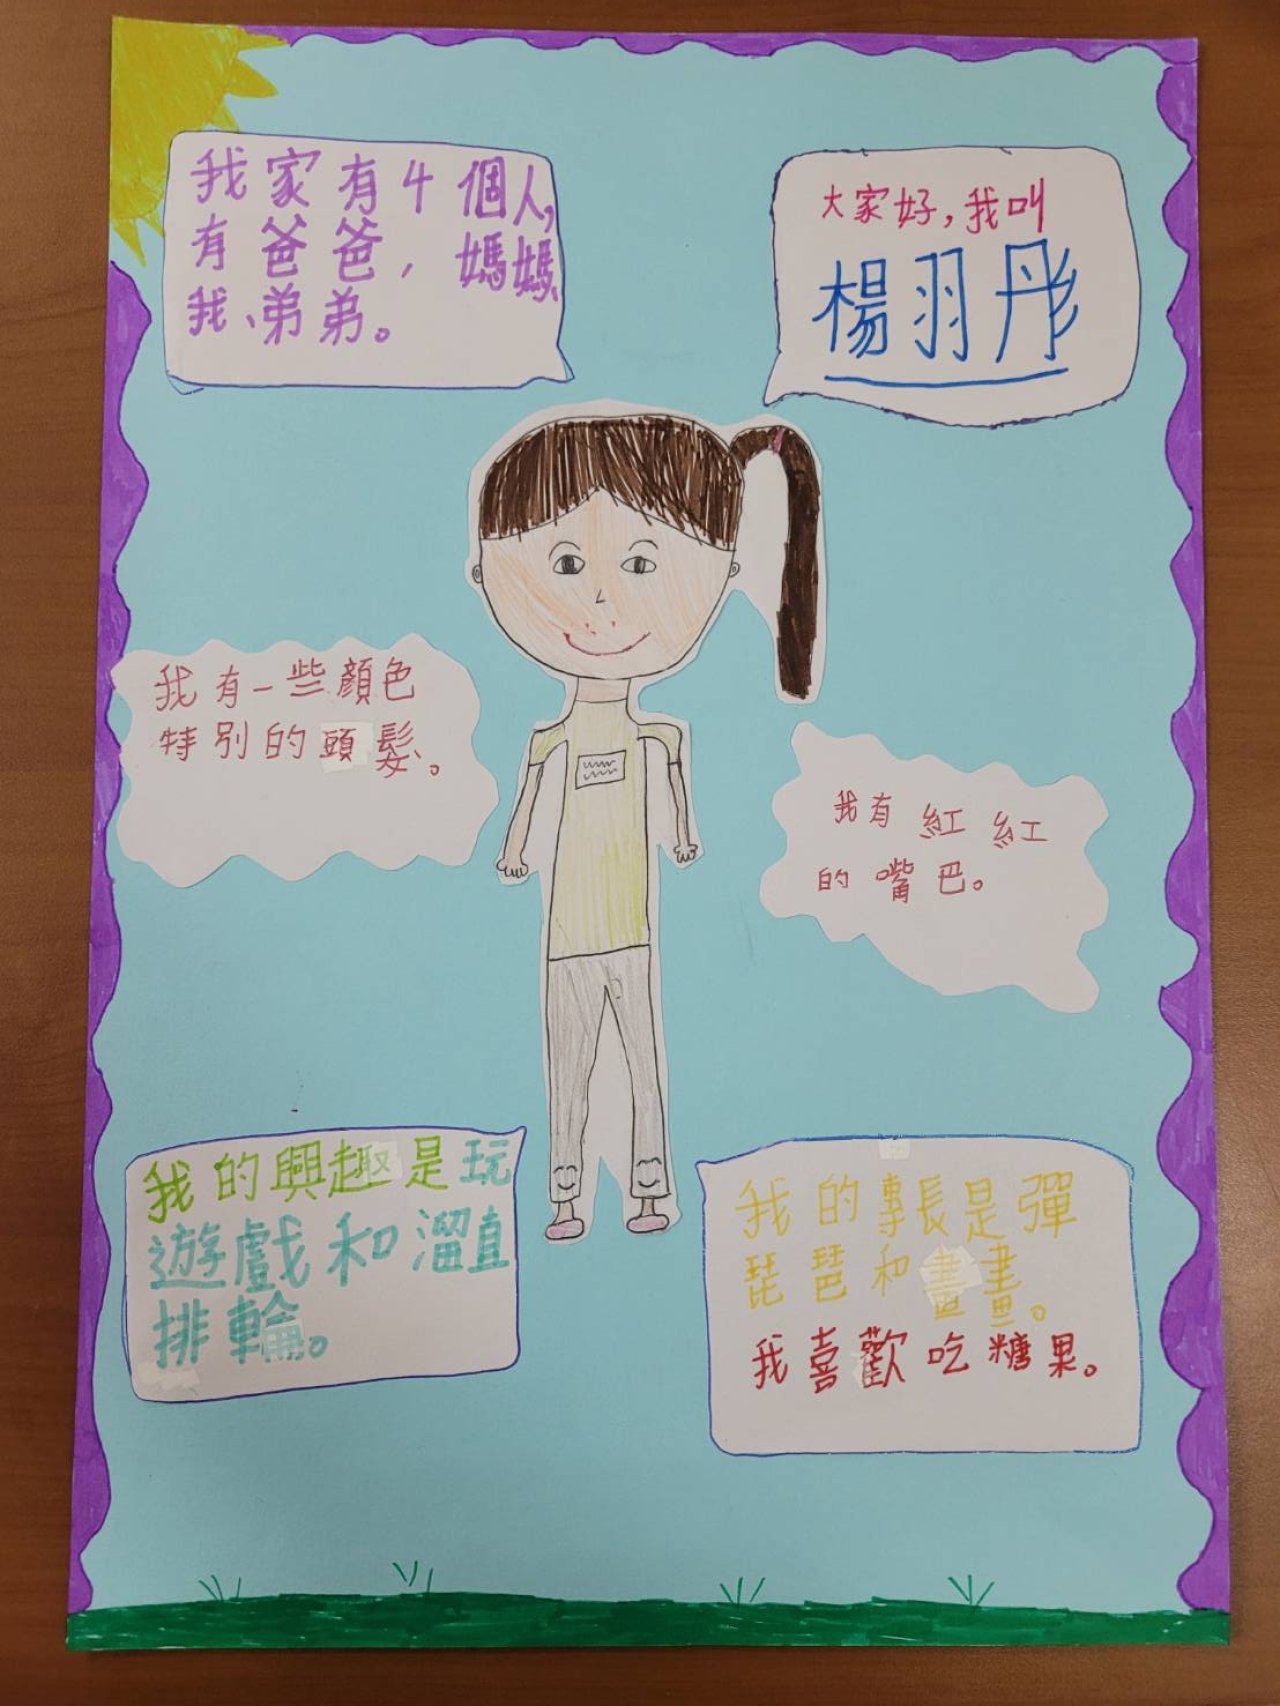 我家有4個人,
有爸爸,媽媽、
我、弟弟。
大家好,我叫
楊羽彤
我有一些顏色
特別的頭髮。
我有紅紅
的嘴巴。
我的興趣是玩
遊戲和溜直
排輪。
我的專長是彈
琵琶和畫畫。
我喜歡吃糖果。